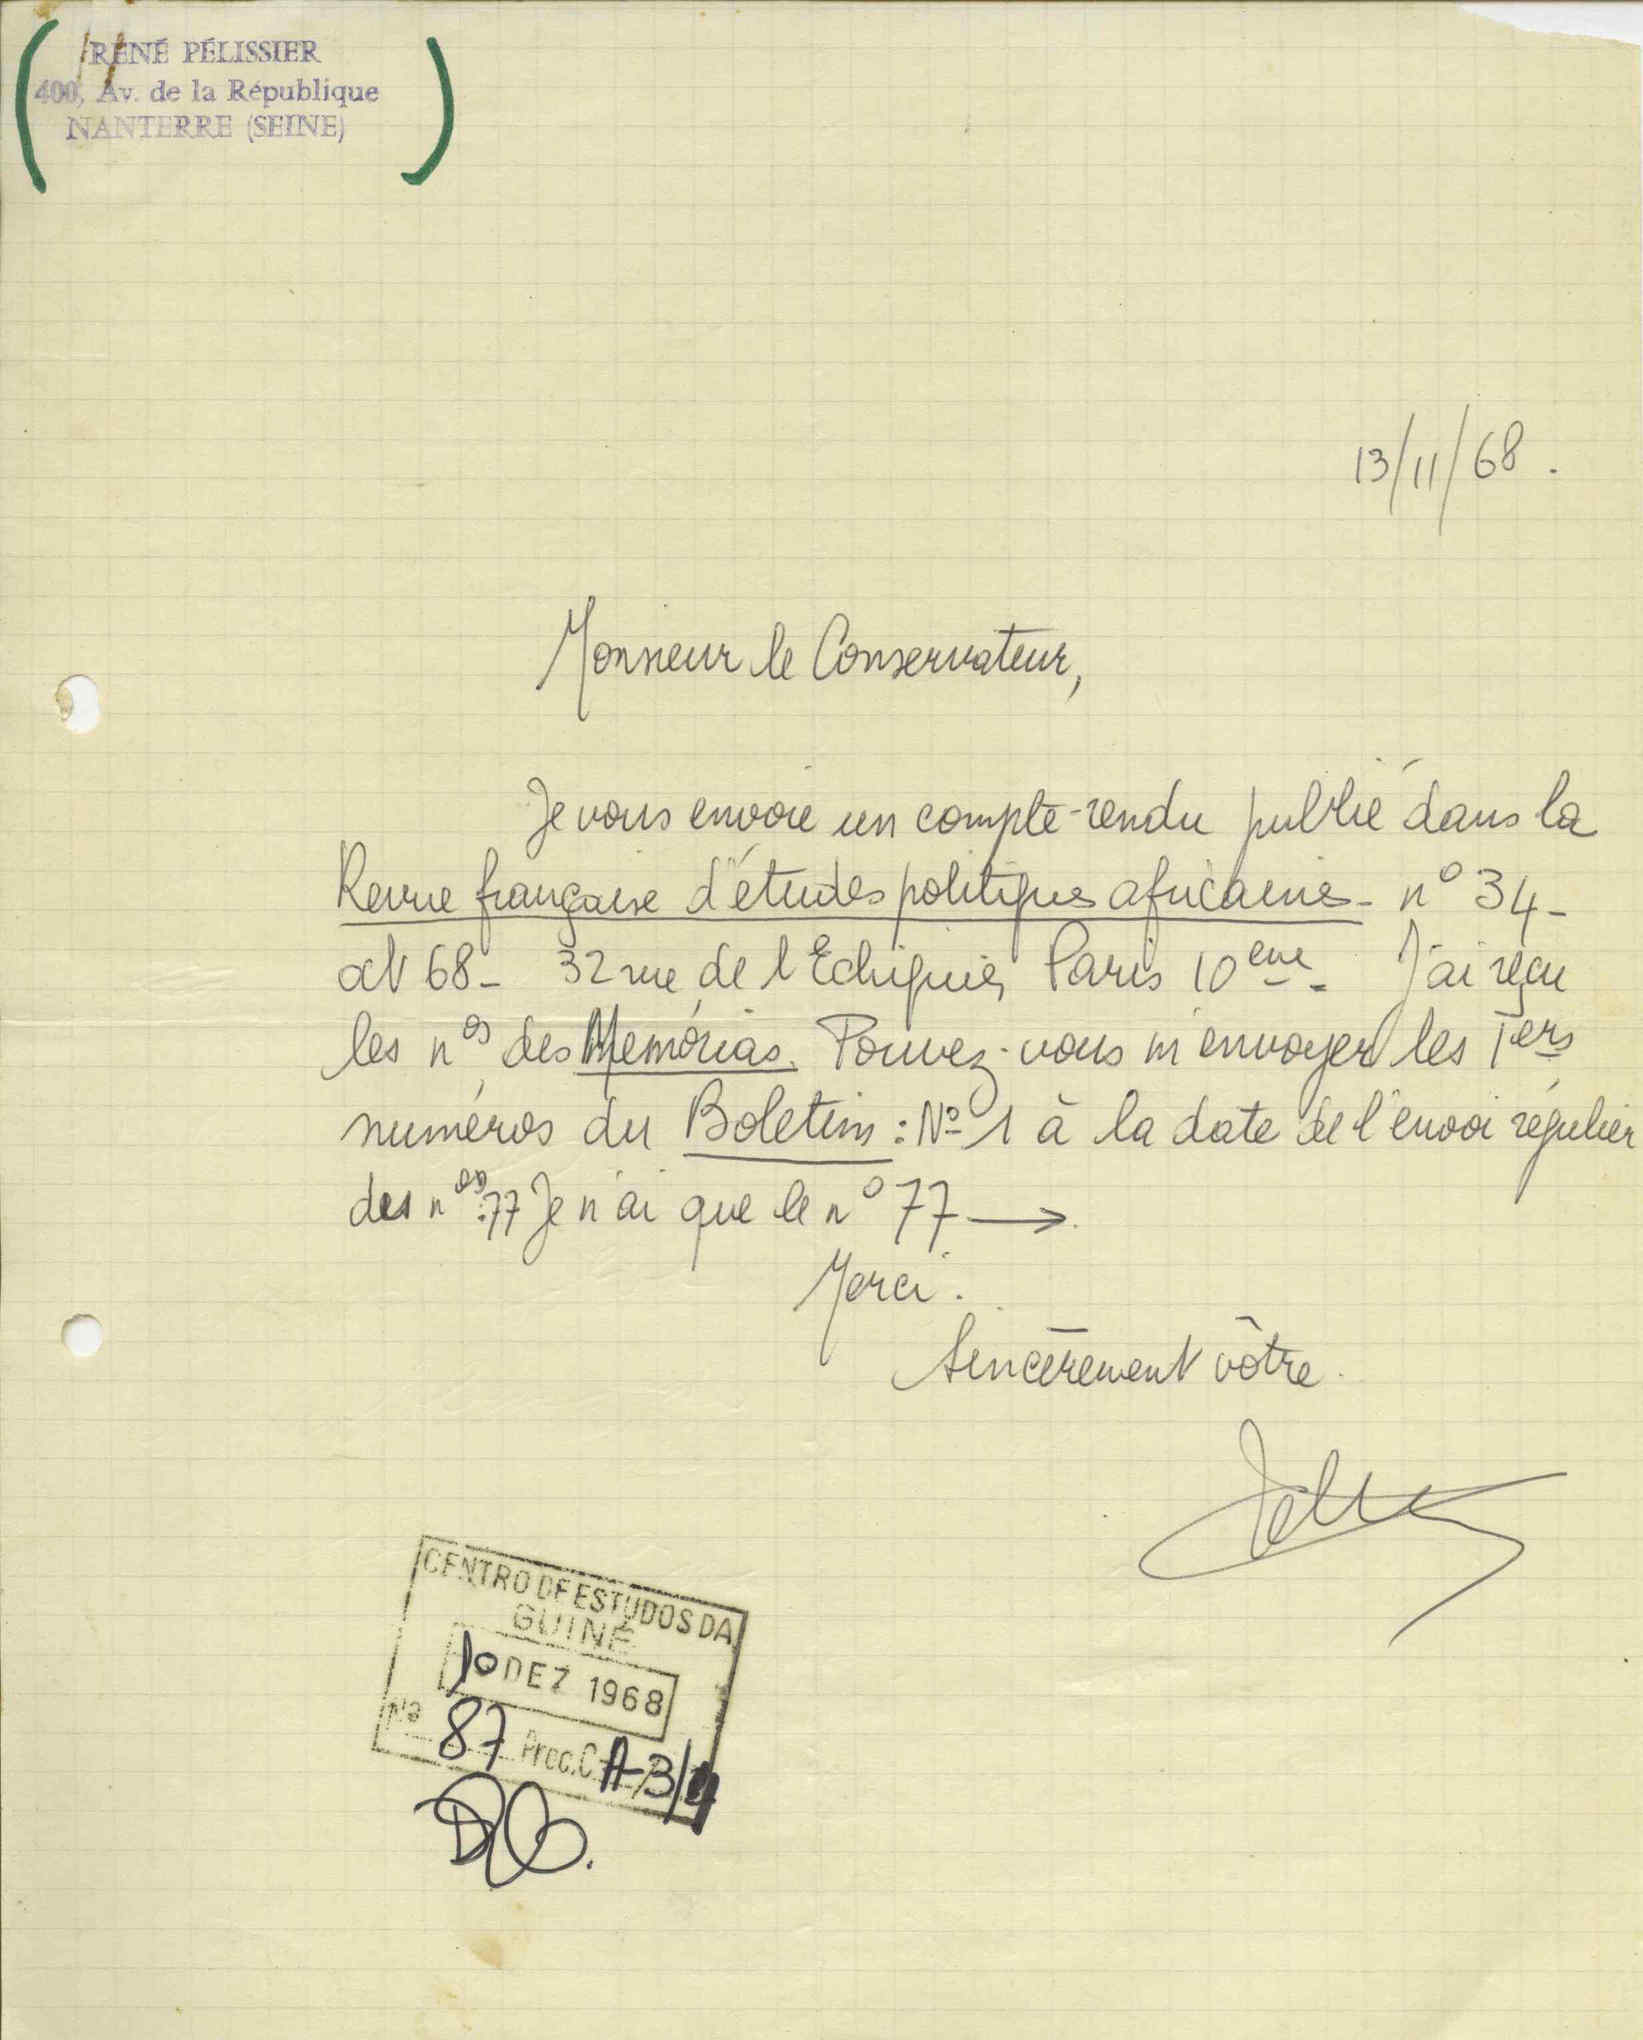 RENÉ PÉLISSIER
400, Av. de la République
NANTERRE (SEINE)
13/11/68.
Monsieur le Conservateur,
Je vous envoie un compte-rendu publié dans la
Revue française d'études politiques africaines - n° 34 -
oct 68 - 32 rue de l'Echiquier, Paris 10ème. J'ai reçu
les nos des Memórias. Pouvez-vous m'envoyer les 1ers
numéros du Boletim : Nº 1 à la date de l'envoi régulier
des nos :77 Je n'ai que le n° 77 →.
Merci.
Sincèrement vôtre
CENTRO DE ESTUDOS DA
GUINÉ
10 DEZ 1968
Nº 87 Proc. C A-3/